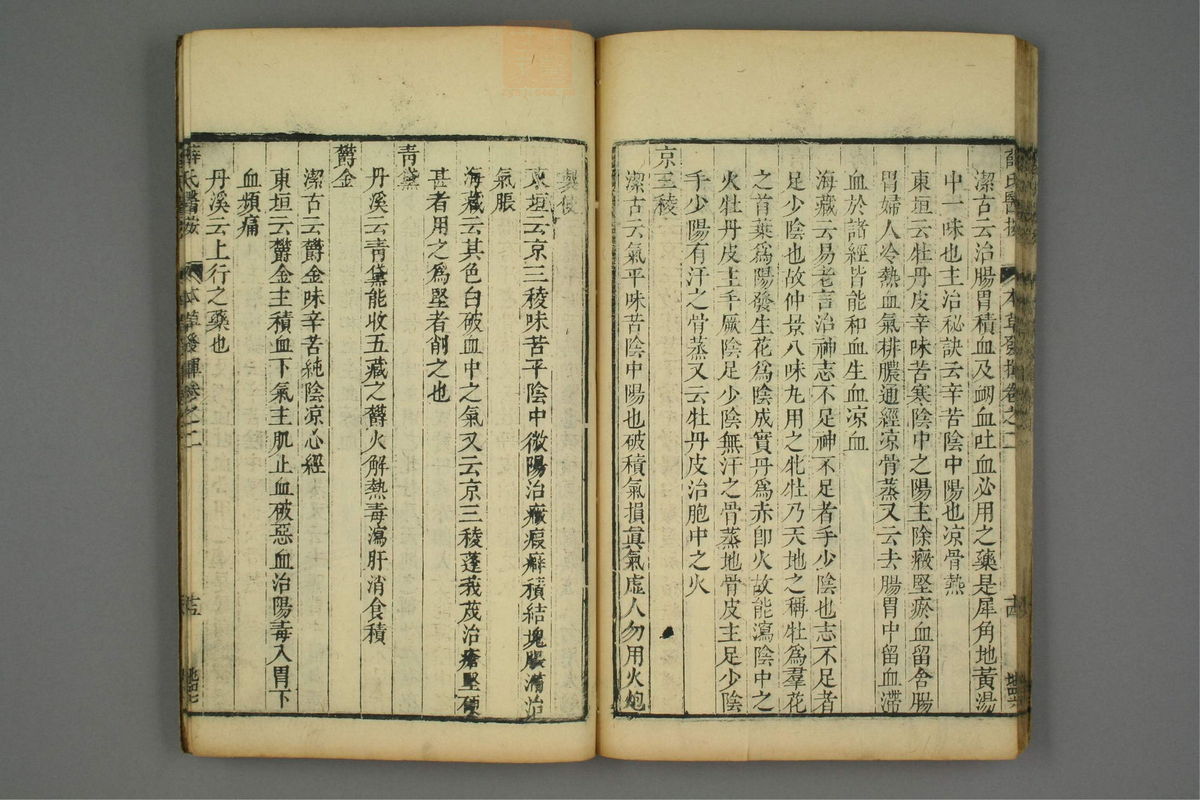 潔古云治腸胃積血及衂血吐血必用之藥是犀角地黃湯
中一味也主治秘訣云辛苦陰中陽也凉骨熱
東垣云牡丹皮辛味苦寒陰中之陽主除癥堅瘀血留舍腸
胃婦人冷熱血氣排膿通經凉骨蒸又云去腸胃中留血滯
血於諸經皆能和血生血凉血
海藏云易老言治神志不足神不足者手少陰也志不足者
足少陰也故仲景八味丸用之牝牡乃天地之稱牡爲羣花
之首葉爲陽發生花爲陰成實丹爲赤卽火故能瀉陰中之
火牡丹皮主手厥陰足少陰無汗之骨蒸地骨皮主足少陰
手少陽有汗之骨蒸又云牡丹皮治胞中之火
京三稜
潔古云氣平味苦陰中陽也破積氣損眞氣虛人勿用火炮
製使
東垣云京三稜味苦平陰中微陽治癥瘕癖積結塊脹滿治
氣脹
海藏云其色白破血中之氣又云京三稜蓬莪茂治瘡堅硬
甚者用之爲堅者削之也
青黛
丹溪云青黛能收五藏之鬱火解熱毒瀉肝消食積
鬱金
潔古云鬱金味辛苦純陰凉心經
東垣云鬱金主積血下氣主肌止血破惡血治陽毒入胃下
血頻痛
丹溪云上行之藥也
薛氏醫按 本草發揮卷之二